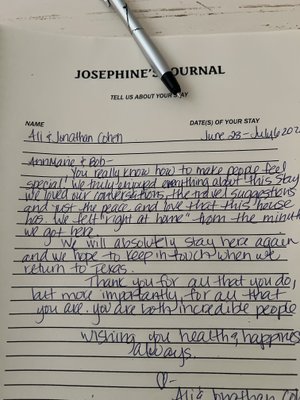 JOSEPHINE'S JOURNAL
TELL US ABOUT YOUR STAY
NAME
DATE(S) OF YOUR STAY
Ali & Jonathan Cohen
June 28 - July 6 202
AnnMarie & Bob-
You really know how to make people feel
special! We truly enjoyed everything about this stay
we loved our conversations, the travel suggestions
and just the peace and love that this house
has. We felt "right at home" from the minute
we got here.
We will absolutely stay here again
and we hope to keep in touch when we
return to Texas.
Thank you for all that you do,
but more importantly, for all that
you are. you are both incredible people
Wishing you health & happiness
always.
♡-
Ali & Jonathan Co